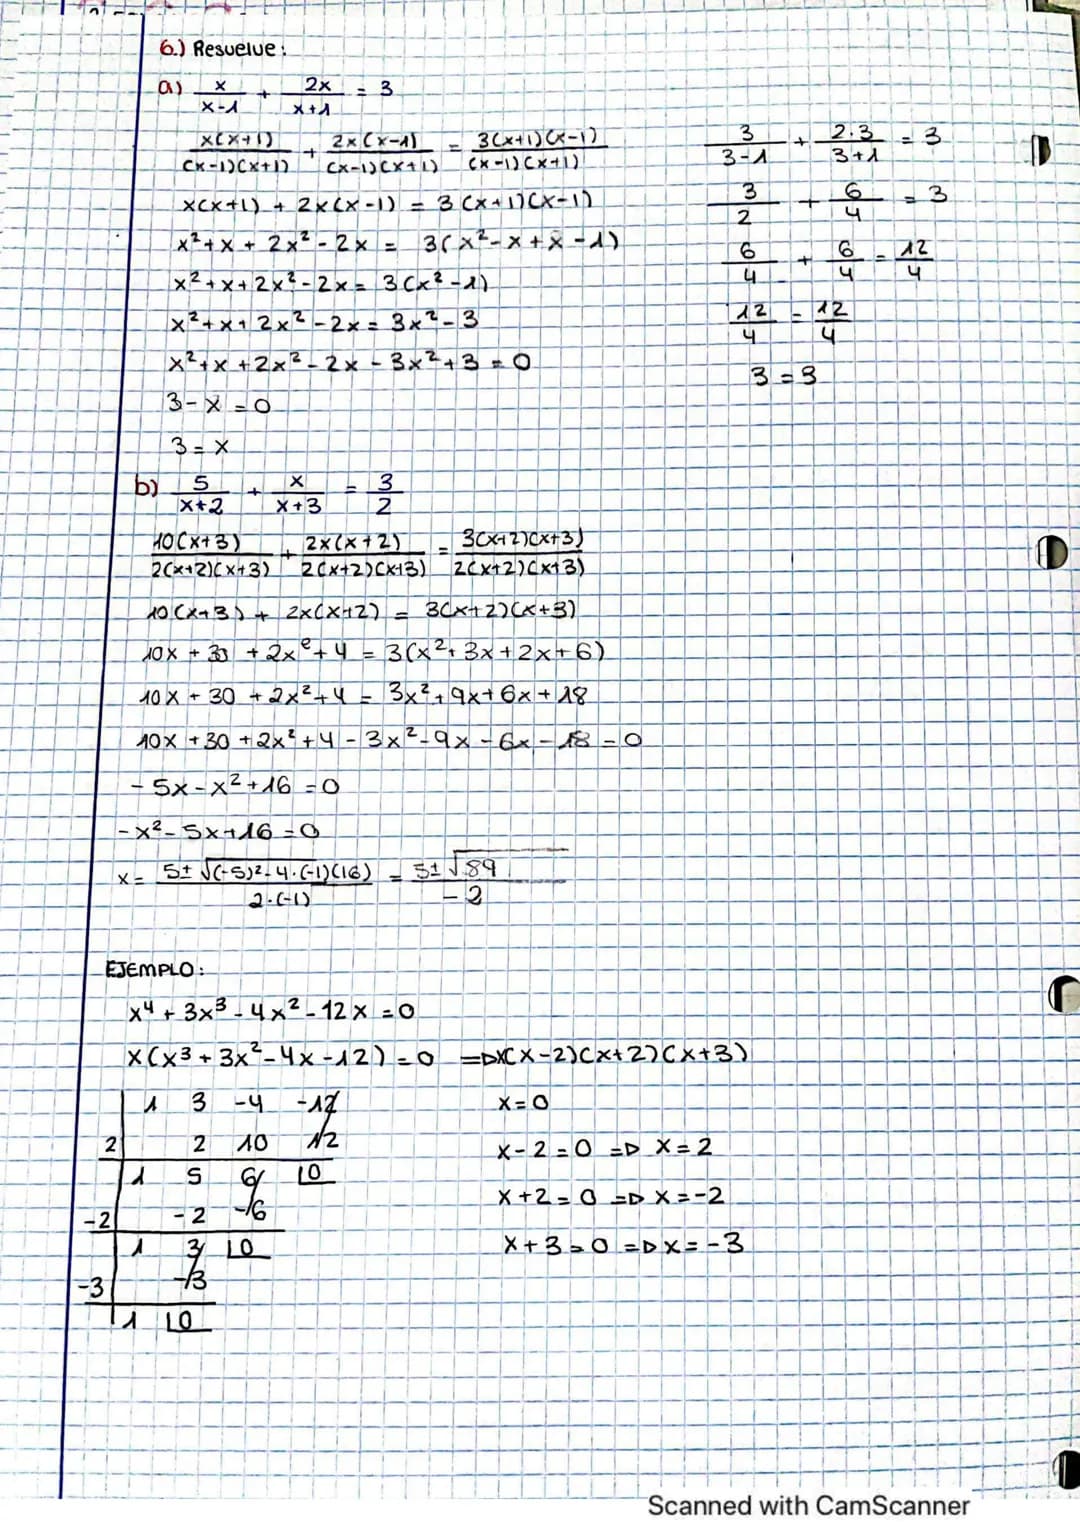 6.) Resuelve:
a) x/(x-1) + 2x/(x+1) = 3
x(x+1)/((x-1)(x+1)) + 2x(x-1)/((x-1)(x+1)) = 3(x+1)(x-1)/((x-1)(x+1))
x(x+1) + 2x(x-1) = 3(x+1)(x-1)
x²+x + 2x²-2x = 3(x²-x+x-1)
x²+x+2x²-2x = 3(x²-1)
x²+x+2x²-2x = 3x²-3
x²+x+2x²-2x-3x²+3 = 0
3-x = 0
3 = x
3/(3-1) + 2·3/(3+1) = 3
3/2 + 6/4 = 3
6/4 + 6/4 = 12/4
12/4 = 12/4
3 = 3
b) 5/(x+2) + x/(x+3) = 3/2
10(x+3)/(2(x+2)(x+3)) + 2x(x+2)/(2(x+2)(x+3)) = 3(x+2)(x+3)/(2(x+2)(x+3))
10(x+3) + 2x(x+2) = 3(x+2)(x+3)
10x + 30 + 2x²+4 = 3(x²+3x+2x+6)
10x + 30 + 2x²+4 = 3x²+9x+6x+18
10x +30 +2x²+4-3x²-9x-6x-18 = 0
-5x-x²+16 = 0
-x²-5x+16 = 0
x = (5±√((-5)²-4·(-1)(16)))/(2·(-1)) = (5±√89)/(-2)
EJEMPLO:
x⁴+3x³-4x²-12x = 0
x(x³+3x²-4x-12) = 0 => x(x-2)(x+2)(x+3)
1 3 -4 -12
2 2 10 12
1 5 6 0
-2 -2 -6
1 3 0
-3 -3
1 0
x = 0
x-2 = 0 => x = 2
x+2 = 0 => x = -2
x+3 = 0 => x = -3
Scanned with CamScanner